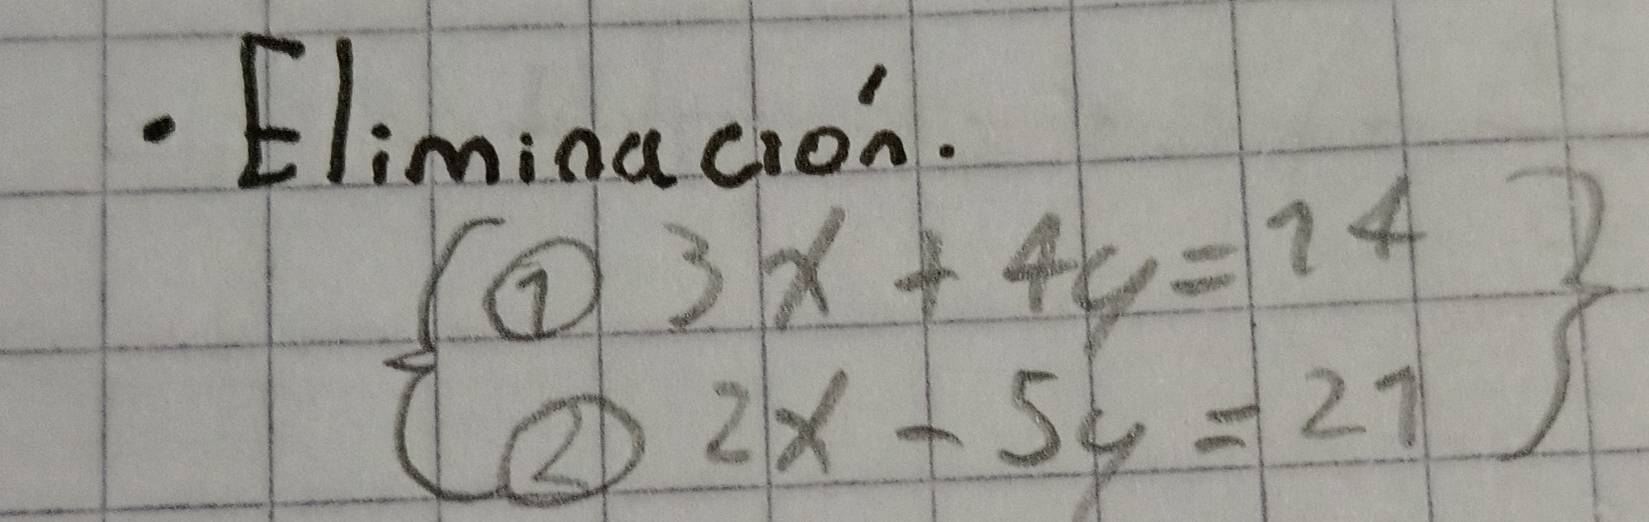 · Eliminación.
① 3x + 4y = 14
② 2x - 5y = 21